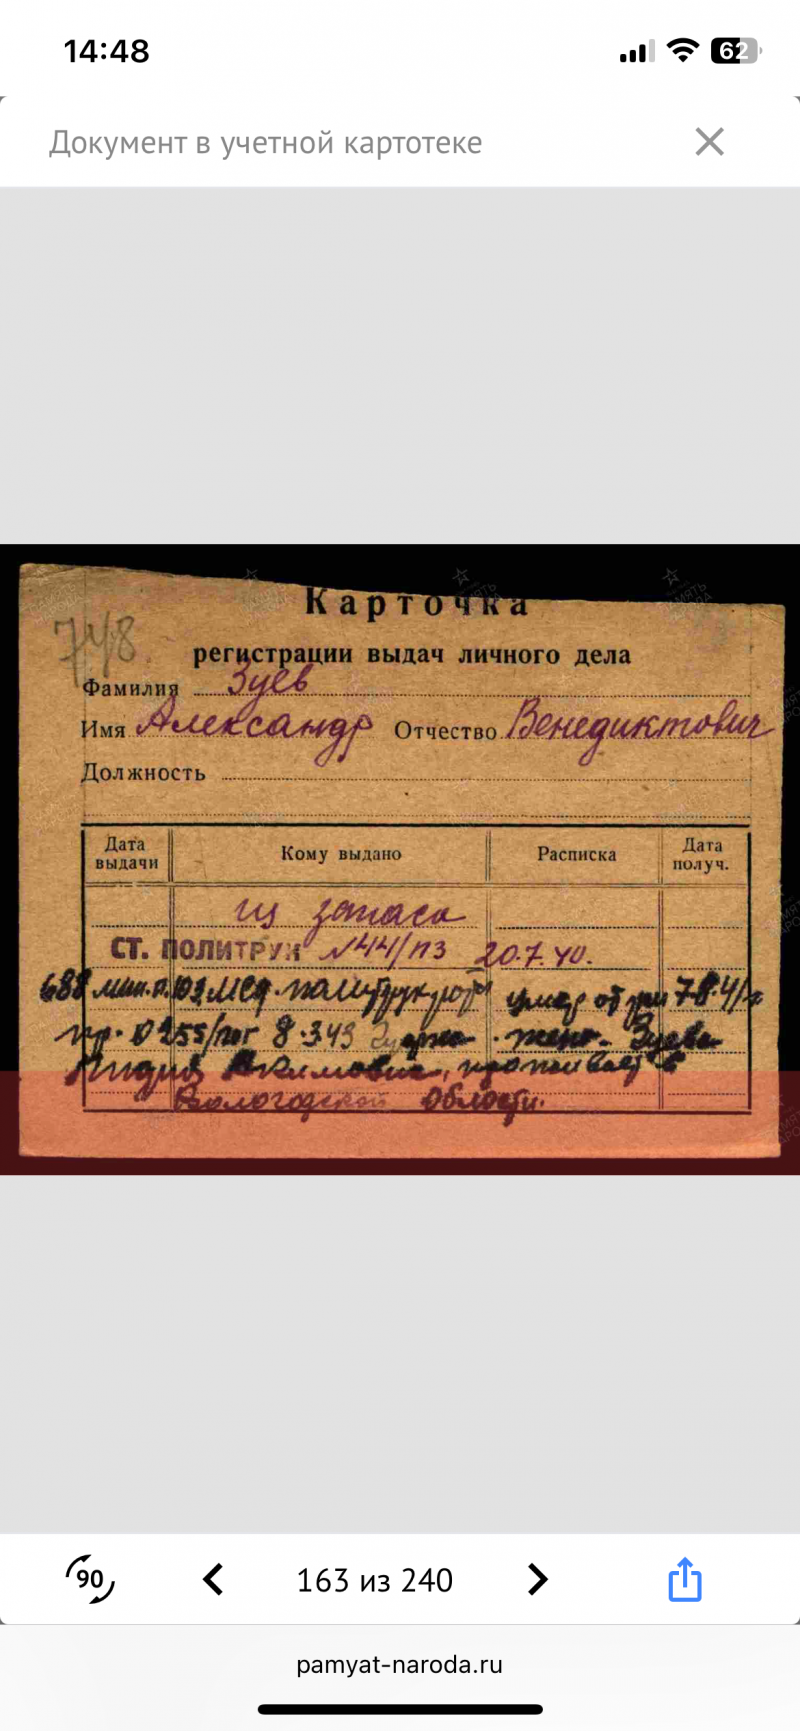 14:48
62
Документ в учетной картотеке
748
Карточка
регистрации выдач личного дела
Фамилия Зуев
Имя Александр Отчество Венедиктович
Должность
Дата выдачи
Кому выдано
Расписка
Дата получ.
из запаса
СТ. ПОЛИТРУК №44/пз 20.7.40.
688 мин.п. 103 политрук роты умер от ран 7.8.41г
пр. 0255/пог 8.3.43 жена - Зуева
Лидия Акимовна, проживает в
Вологодской области.
90
163 из 240
pamyat-naroda.ru